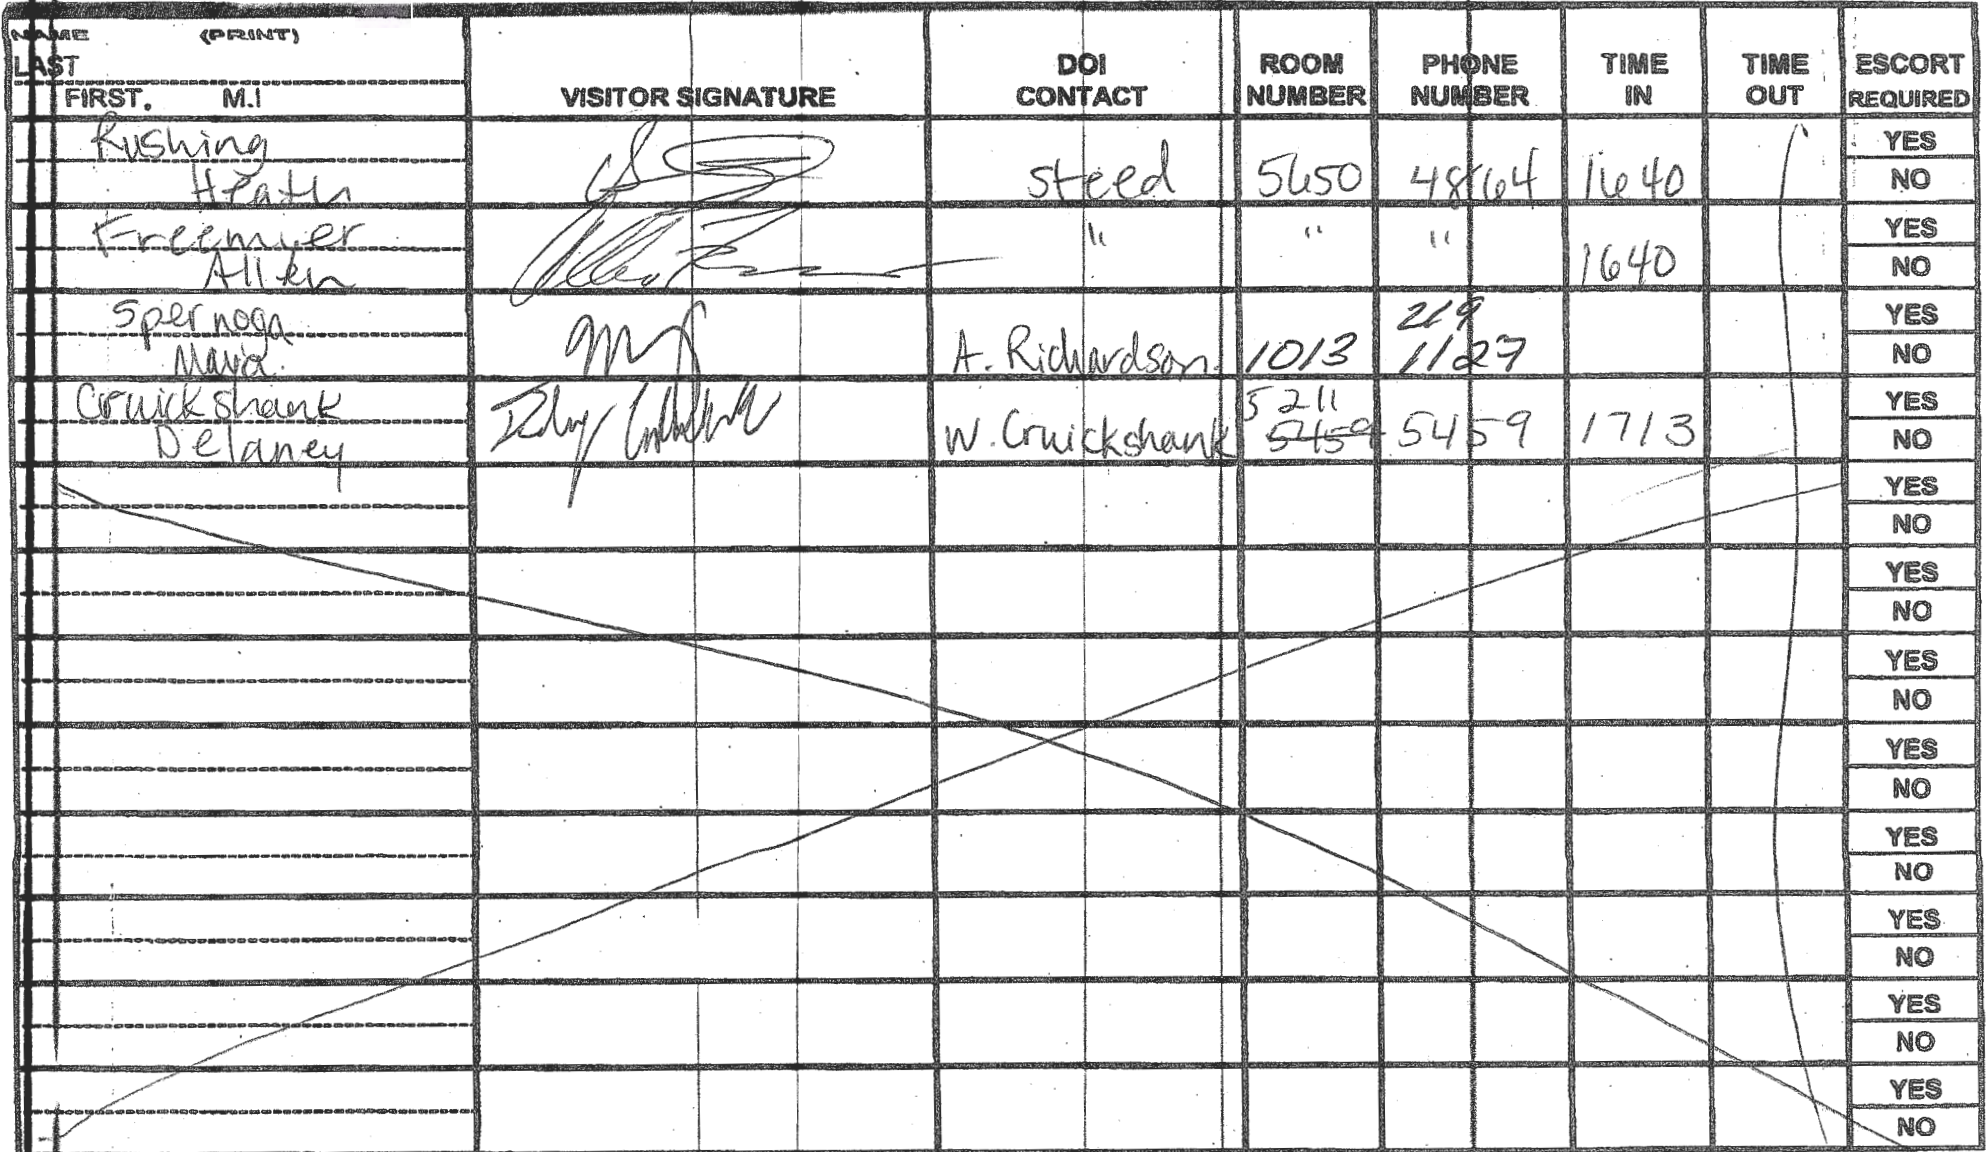 NAME (PRINT)
LAST
FIRST. M.I
VISITOR SIGNATURE
DOI CONTACT
ROOM NUMBER
PHONE NUMBER
TIME IN
TIME OUT
ESCORT REQUIRED
Rushing
Heath
Steed 5650 4864 1640
YES
NO
Freemyer
Allen
" " " 1640
YES
NO
Spernoga
Maria
A. Richardson 1013 219 1127
YES
NO
Cruickshank
Delaney
W. Cruickshank 5211 5459 5459 1713
YES
NO
YES
NO
YES
NO
YES
NO
YES
NO
YES
NO
YES
NO
YES
NO
YES
NO